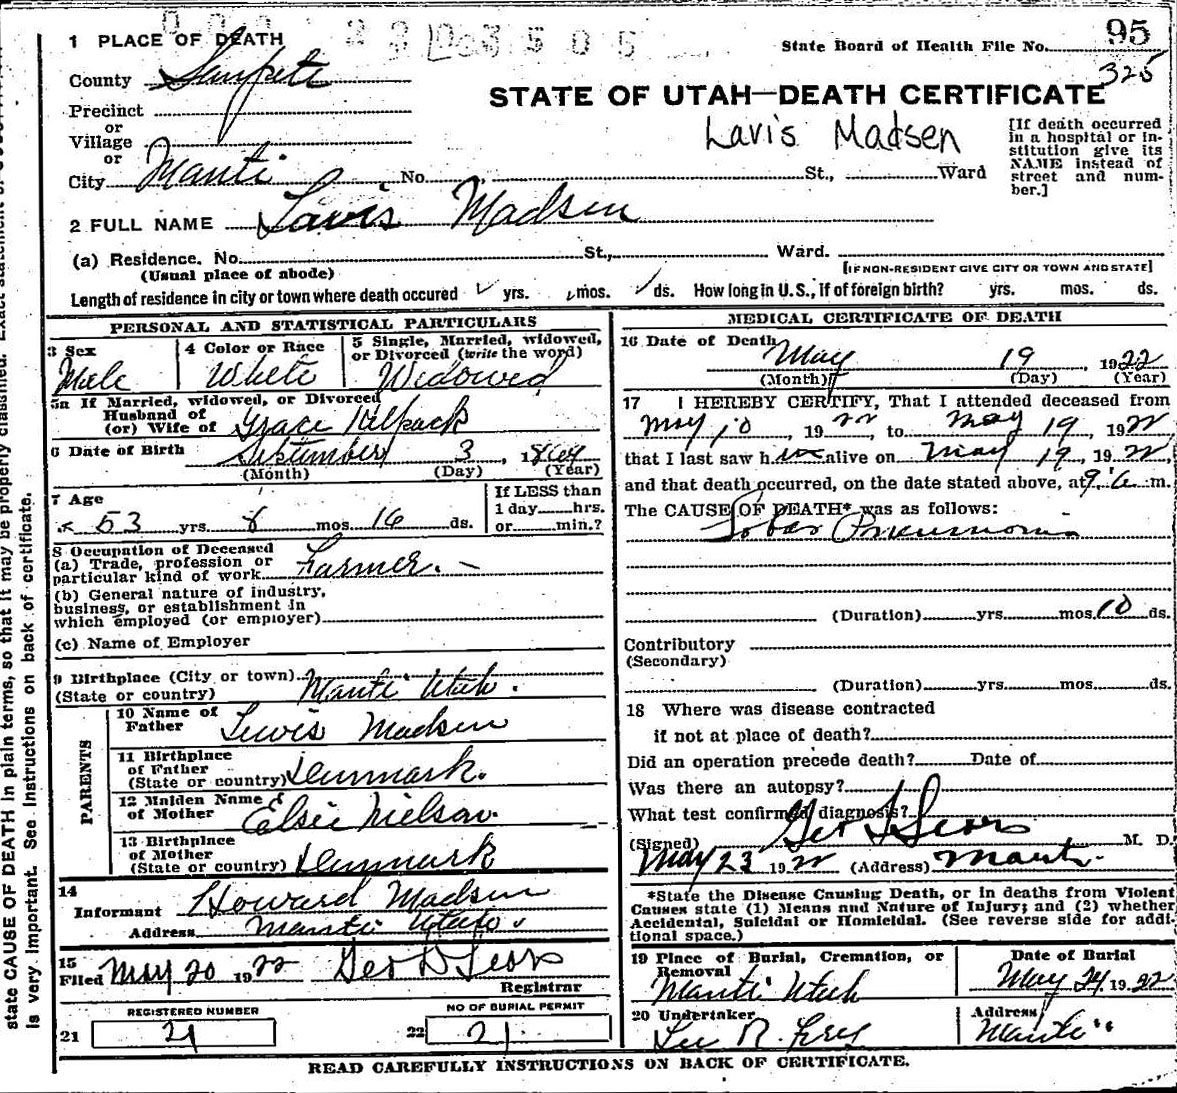 1 PLACE OF DEATH
State Board of Health File No. 95
325
County Sanpete
STATE OF UTAH—DEATH CERTIFICATE
Precinct
or
Village
Lavis Madsen
[If death occurred
in a hospital or in-
stitution give its
NAME instead of
street and num-
ber.]
or
City Manti No. St., Ward
2 FULL NAME Lavis Madsen
(a) Residence. No. St., Ward.
(Usual place of abode)
[IF NON-RESIDENT GIVE CITY OR TOWN AND STATE]
Length of residence in city or town where death occured yrs. mos. ds. How long in U.S., if of foreign birth? yrs. mos. ds.
PERSONAL AND STATISTICAL PARTICULARS
3 Sex
Male
4 Color or Race
White
5 Single, Married, widowed,
or Divorced (write the word)
Widowed
5a If Married, widowed, or Divorced
Husband of
(or) Wife of Grace Kilpack
6 Date of Birth September 3, 18
(Month) (Day) (Year)
7 Age
53 yrs. 8 mos. 16 ds.
If LESS than
1 day hrs.
or min.?
8 Occupation of Deceased
(a) Trade, profession or
particular kind of work Farmer.
(b) General nature of industry,
business, or establishment in
which employed (or employer)
(c) Name of Employer
9 Birthplace (City or town)
(State or country) Manti Utah.
PARENTS
10 Name of
Father Lewis Madsen
11 Birthplace
of Father
(State or country) Denmark.
12 Maiden Name
of Mother Elsie Nielson.
13 Birthplace
of Mother
(State or country) Denmark
14
Informant Howard Madsen
Address Manti Utah
15
Filed May 20 1922 Geo D Sears
Registrar
REGISTERED NUMBER
21 21
NO OF BURIAL PERMIT
22 21
MEDICAL CERTIFICATE OF DEATH
16 Date of Death
May 19, 1922
(Month) (Day) (Year)
17 I HEREBY CERTIFY, That I attended deceased from
May 10, 1922, to May 19, 1922
that I last saw him alive on May 19, 1922,
and that death occurred, on the date stated above, at m.
The CAUSE OF DEATH* was as follows:
Lobar Pneumonia
(Duration) yrs. mos. 10 ds.
Contributory
(Secondary)
(Duration) yrs. mos. ds.
18 Where was disease contracted
if not at place of death?
Did an operation precede death? Date of
Was there an autopsy?
What test confirmed diagnosis?
(Signed) Geo L Sears M. D.
May 23 1922 (Address) Manti.
*State the Disease Causing Death, or in deaths from Violent
Causes state (1) Means and Nature of Injury; and (2) whether
Accidental, Suicidal or Homicidal. (See reverse side for addi-
tional space.)
19 Place of Burial, Cremation, or
Removal
Manti Utah
Date of Burial
May 24, 1922
20 Undertaker
Lee R.
Address
Manti
READ CAREFULLY INSTRUCTIONS ON BACK OF CERTIFICATE.
state CAUSE OF DEATH in plain terms, so that it may be properly classified. Exact statement of
is very important. See instructions on back of certificate.